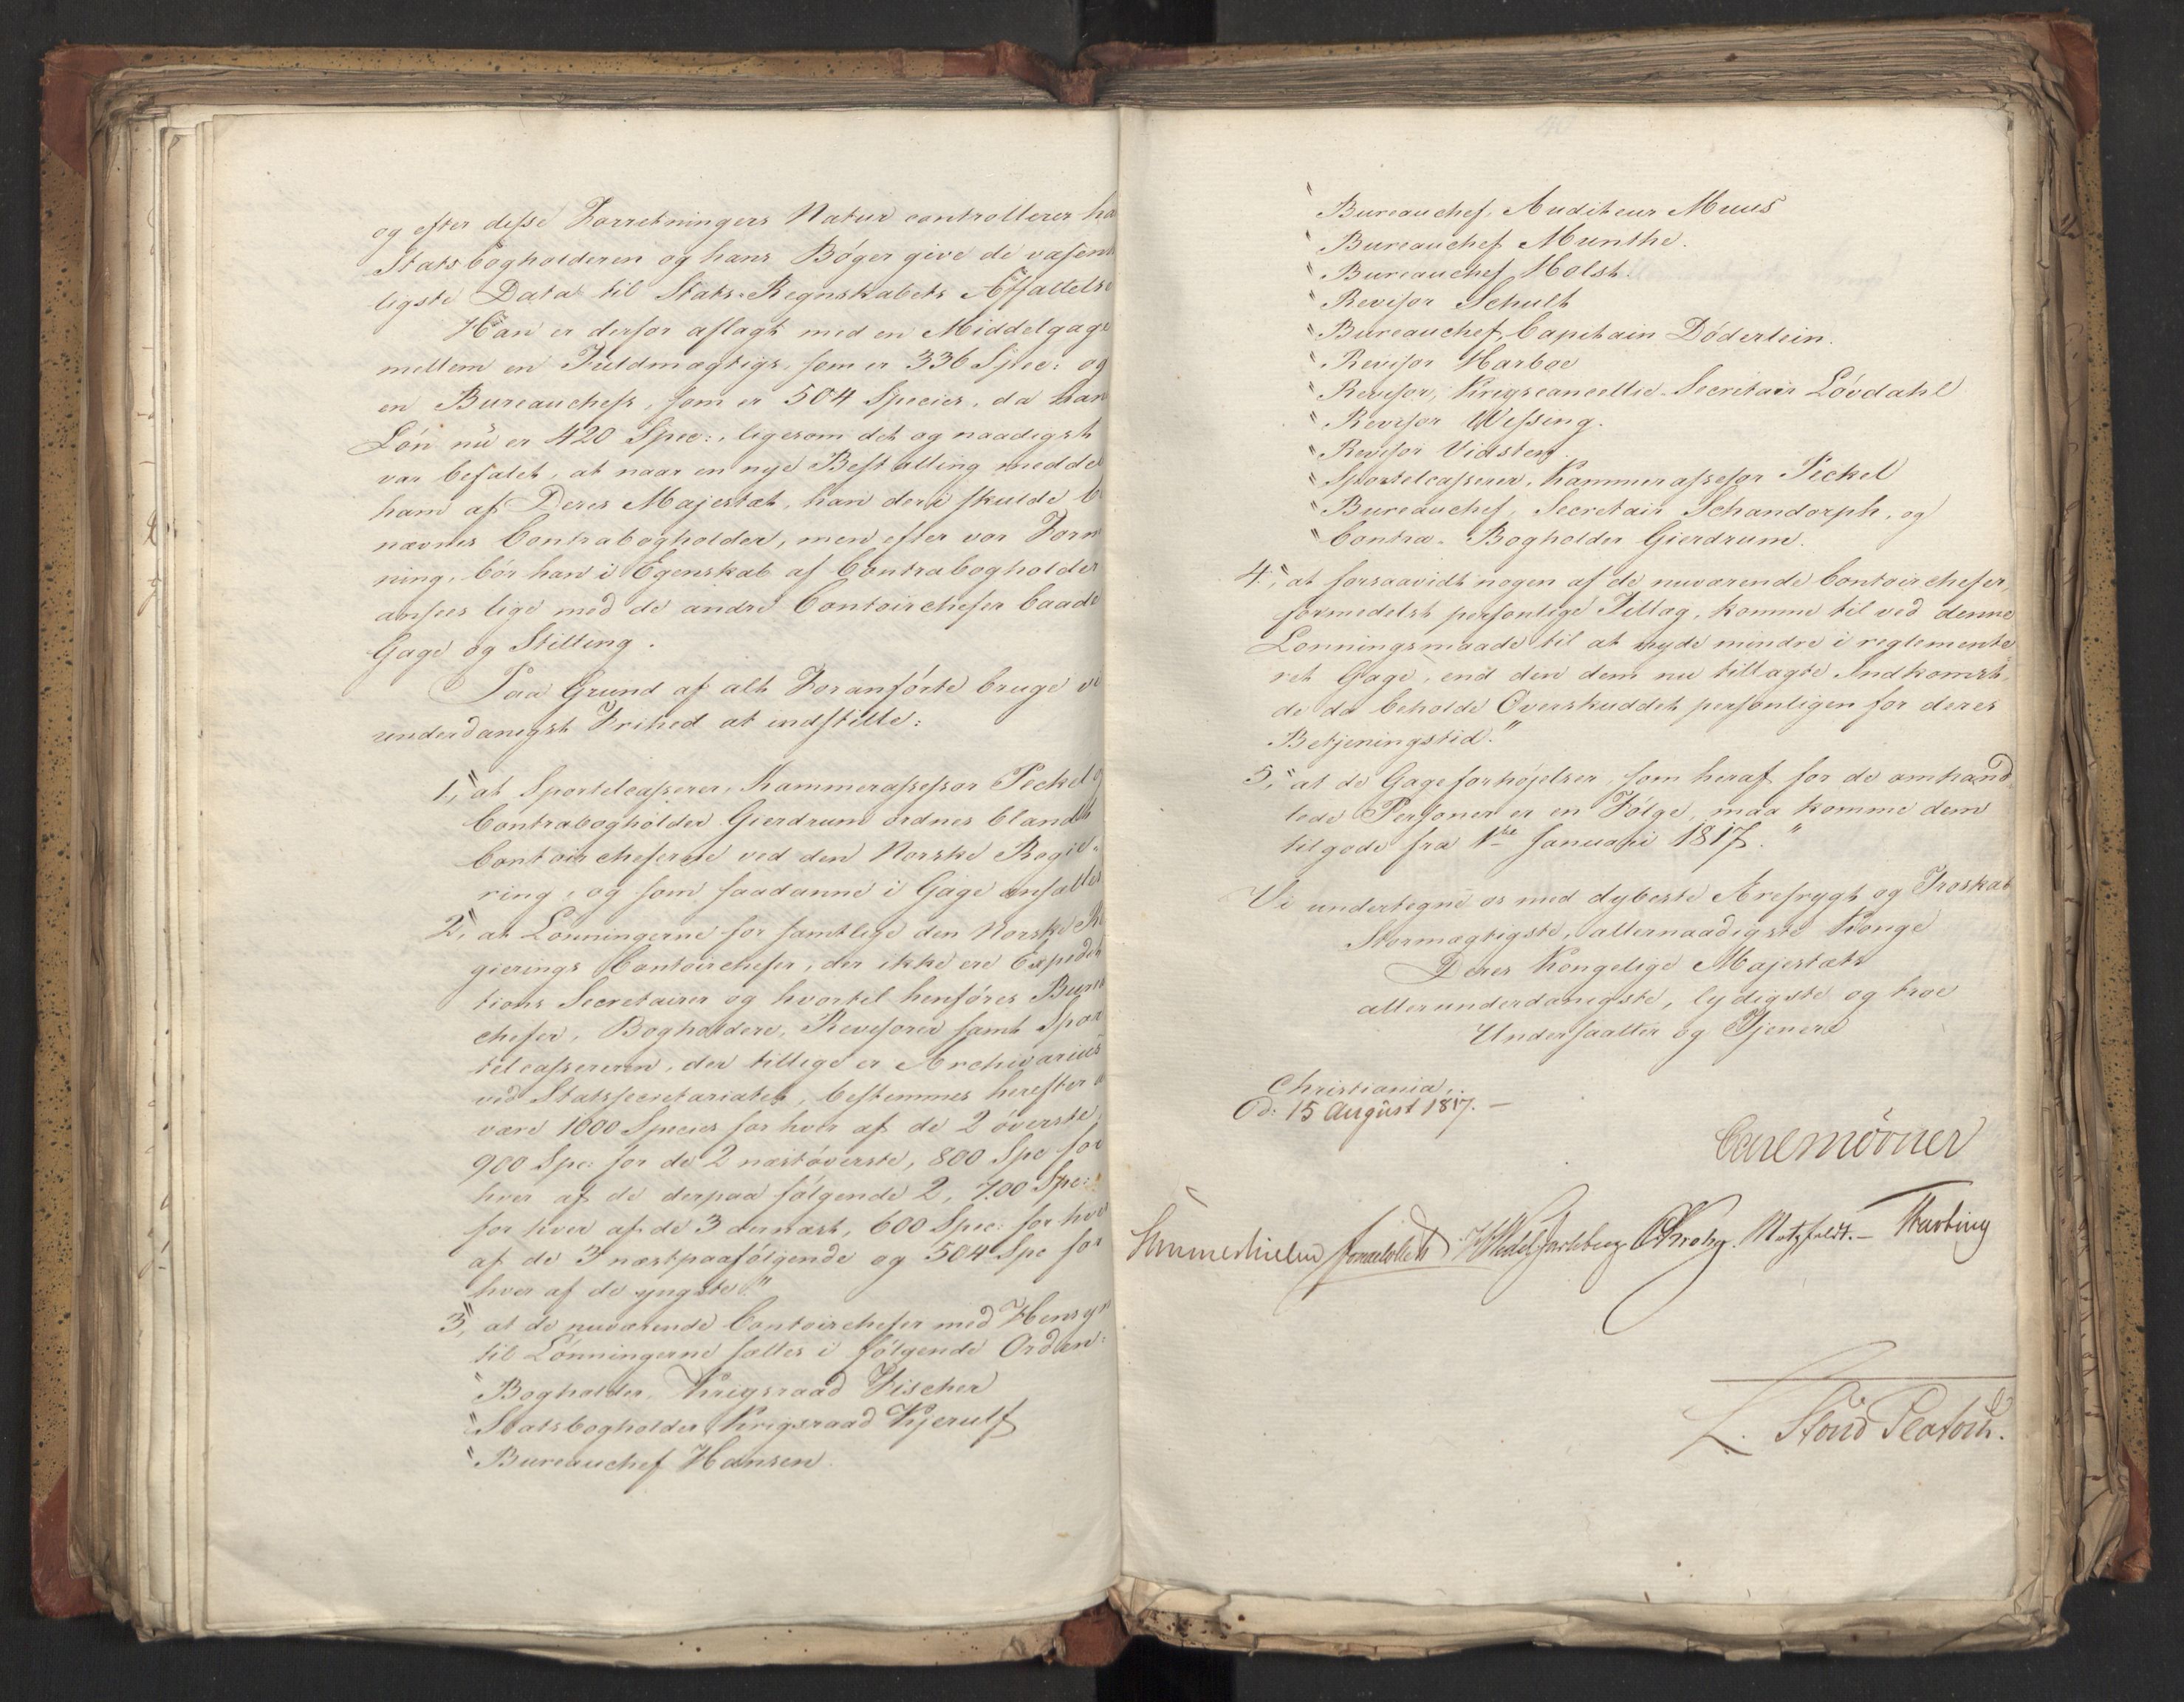 og efter disse Forretningers Natur controllerer ha
Statsbogholderen og hans Bøger give de væsent
ligste Data til Stats-Regnskabets Affattelse
Han er derfor aflagt med en Middelgage
mellem en Fuldmægtigs, som er 336 Spec: og
en Bureauchefs, som er 504 Species, da hans
Løn nu er 420 Spec:, ligesom det og naadigst
var befalet, at naar en nye Bestalling meddel
ham af Deres Majestæt, han deri skulde b
nævnes Contrabogholder, men efter vor Form
ning, bør han i Egenskab af Contrabogholder
ansees lige med de andre Contoirchefer baade
Gage og Stilling.
Paa Grund af alt Foranførte bruge vi
underdanigst Frihed at indstille:
1, "at Sportelcasserer, Kammerassessor Peckel og
Contrabogholder Gierdrum ordnes blandt
Contoircheferne ved den Norske Regie-
ring, og som saadanne i Gage ansættes
2, "at Lønningerne for samtlige den Norske Re
gierings Contoirchefer, der ikke ere Expedit
tions Secretairer og hvortil henføres Burea
chefer, Bogholdere, Revisorer samt Spor
telcassereren, der tillige er Archivarius
ved Statssecretariatet, bestemmes herefter a
være 1000 Species for hver af de 2 øverste,
900 Spe: for de 2 næstøverste, 800 Spe for
hver af de derpaa følgende 2, 700 Spe:
for hver af de 3 dernæst, 600 Spec: for hve
af de 3 næstpaafølgende og 504 Spe for
hver af de yngste."
3, "at de nuværende Contoirchefer med Hensyn
til Lønningerne sættes i følgende Orden:
" Bogholder, Krigsraad Fischer
" Statsbogholder Krigsraad Kjerulf
" Bureauchef Hansen.
" Bureauchef, Auditeur Muus
" Bureauchef Munthe.
" Bureauchef Holst.
" Revisor Schult
" Bureauchef, Capitain Döderlein.
" Revisor Harboe
" Revisor, Krigscancellie-Secretair Løvdahl
" Revisor Wessing.
" Revisor Vidsteen
" Sportelcasserer, Kammerassessor Peckel
" Bureauchef, Secretair Schandorph, og
" Contra-Bogholder Gierdrum.
4, "at forsaavidt nogen af de nuværende Contoirchefer,
formedelst personlige Tillæg, komme til ved denne
Lønningsmaade til at nyde mindre i reglemente
ret Gage, end den dem nu tillagte Indkomst,
de da beholde Overskuddet personligen for deres
Betjeningstid."
5, "at de Gageforhøjelser, som heraf for de omhand
lede Personer er en Følge, maa komme dem
tilgode fra 1ste Januarii 1817."
Vi undertegne os med dybeste Ærefrygt og Troskab
Stormægtigste, allernaadigste Konge
Deres Kongelige Majestæts
allerunderdanigste, lydigste og troe
Undersaatter og Tjenere
Christiania,
d: 15 August 1817. —
Carl Mörner
Sommerhielm Jonas Collett HWedel Jarlsberg CKrohg. Motzfeldt. — Thesting
L. Stoud Platou.